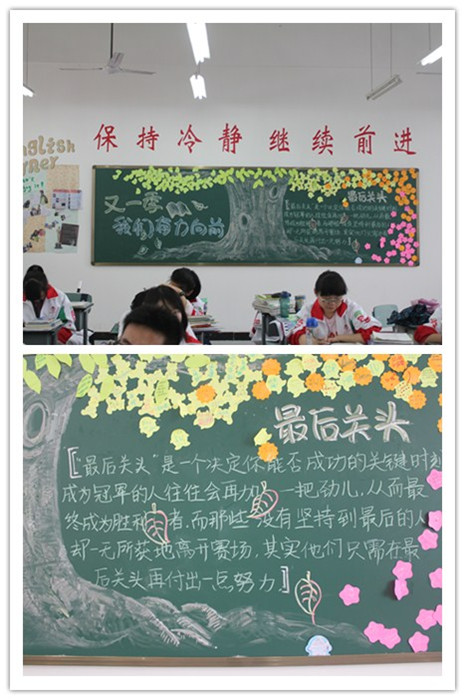 English
保持冷静 继续前进
又一季
我们奋力向前
最后关头
最后关头
["最后关头"是一个决定你能否成功的关键时刻
成为冠军的人往往会再加 一把劲儿,从而最
终成为胜利者,而那些 没有坚持到最后的人
却一无所获地离开赛场,其实他们只需在最
后关头再付出一点努力.]